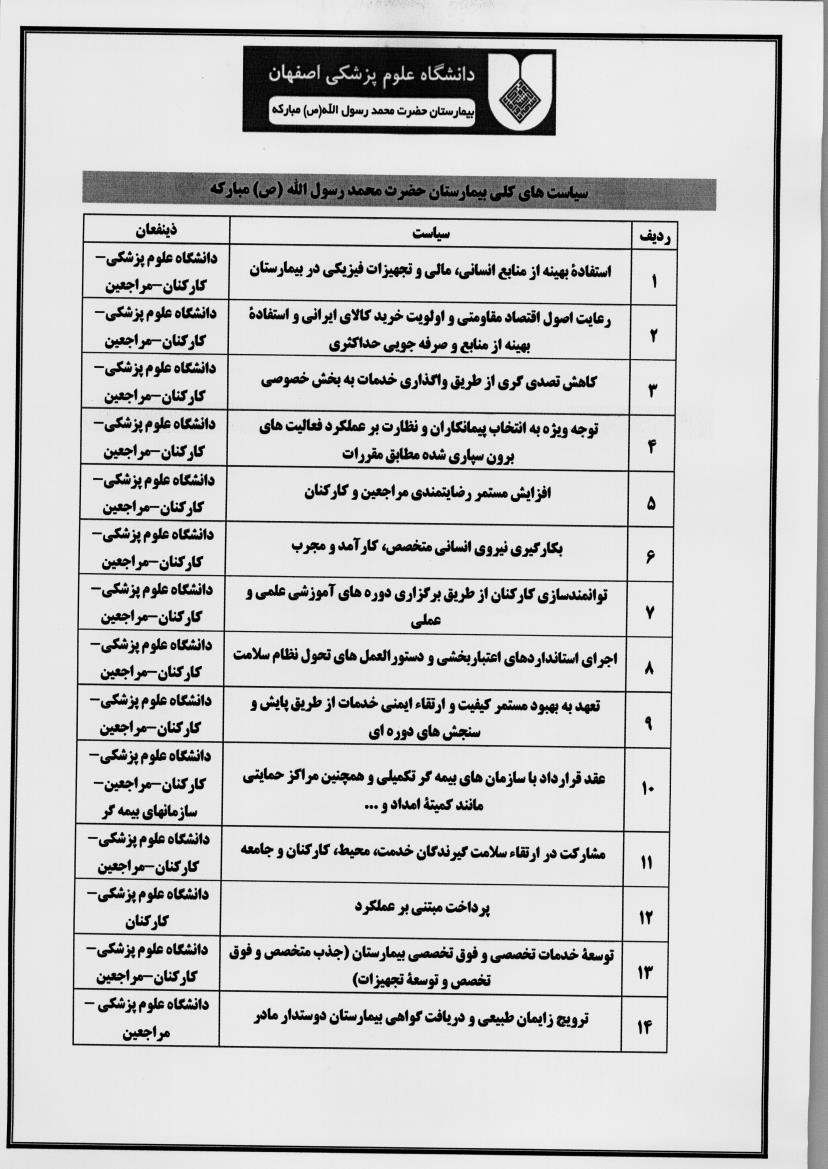 دانشگاه علوم پزشکی اصفهان
بیمارستان حضرت محمد رسول الله(ص) مبارکه
سیاست های کلی بیمارستان حضرت محمد رسول الله (ص) مبارکه
ردیف سیاست ذینفعان
۱ استفادۀ بهینه از منابع انسانی، مالی و تجهیزات فیزیکی در بیمارستان دانشگاه علوم پزشکی–
کارکنان–مراجعین
۲ رعایت اصول اقتصاد مقاومتی و اولویت خرید کالای ایرانی و استفادۀ دانشگاه علوم پزشکی–
بهینه از منابع و صرفه جویی حداکثری کارکنان–مراجعین
۳ کاهش تصدی گری از طریق واگذاری خدمات به بخش خصوصی دانشگاه علوم پزشکی–
کارکنان–مراجعین
۴ توجه ویژه به انتخاب پیمانکاران و نظارت بر عملکرد فعالیت های دانشگاه علوم پزشکی–
برون سپاری شده مطابق مقررات کارکنان–مراجعین
۵ افزایش مستمر رضایتمندی مراجعین و کارکنان دانشگاه علوم پزشکی–
کارکنان–مراجعین
۶ بکارگیری نیروی انسانی متخصص، کارآمد و مجرب دانشگاه علوم پزشکی–
کارکنان–مراجعین
۷ توانمندسازی کارکنان از طریق برگزاری دوره های آموزشی علمی و دانشگاه علوم پزشکی–
عملی کارکنان–مراجعین
۸ اجرای استانداردهای اعتباربخشی و دستورالعمل های تحول نظام سلامت دانشگاه علوم پزشکی–
کارکنان–مراجعین
۹ تعهد به بهبود مستمر کیفیت و ارتقاء ایمنی خدمات از طریق پایش و دانشگاه علوم پزشکی–
سنجش های دوره ای کارکنان–مراجعین
۱۰ عقد قرارداد با سازمان های بیمه گر تکمیلی و همچنین مراکز حمایتی دانشگاه علوم پزشکی–
مانند کمیتۀ امداد و ... کارکنان–مراجعین–
سازمانهای بیمه گر
۱۱ مشارکت در ارتقاء سلامت گیرندگان خدمت، محیط، کارکنان و جامعه دانشگاه علوم پزشکی–
کارکنان–مراجعین
۱۲ پرداخت مبتنی بر عملکرد دانشگاه علوم پزشکی–
کارکنان
۱۳ توسعۀ خدمات تخصصی و فوق تخصصی بیمارستان (جذب متخصص و فوق دانشگاه علوم پزشکی–
تخصص و توسعۀ تجهیزات) کارکنان–مراجعین
۱۴ ترویج زایمان طبیعی و دریافت گواهی بیمارستان دوستدار مادر دانشگاه علوم پزشکی –
مراجعین